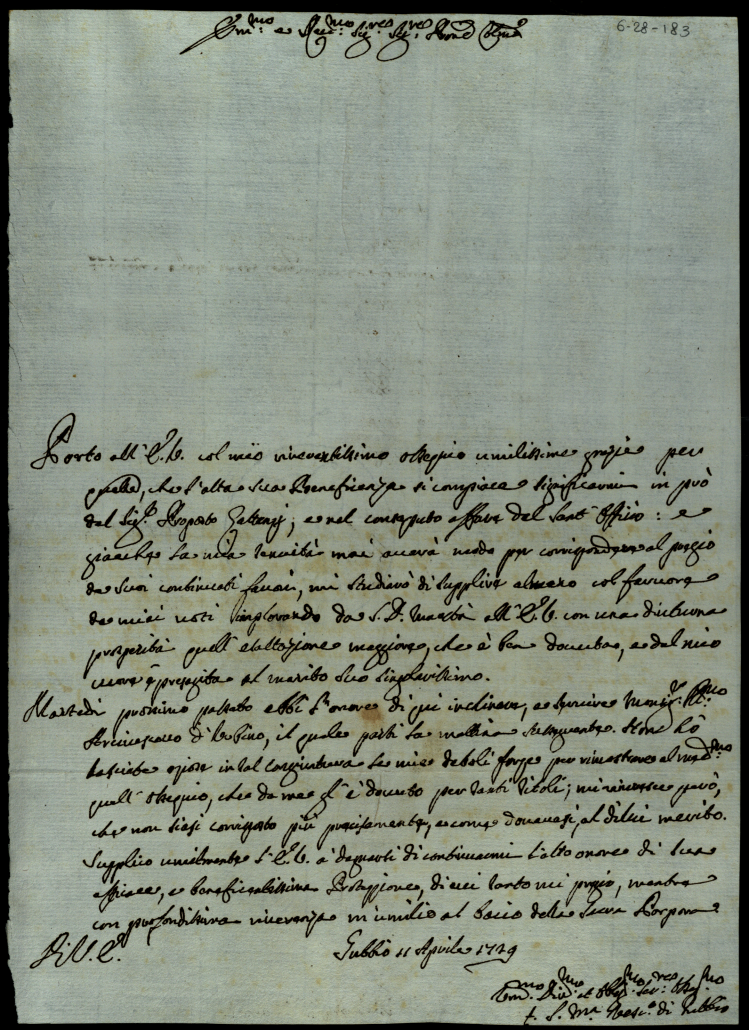 Em.mo e Rev.mo Sig.re Sig.re Prone Col.mo
6-28-183
Porto all'E.V. col mio riverentissimo ossequio umilissime grazie per
quella, che l'alta sua Beneficenza si compiace significarmi in prò
del Sig.r Proposto; e nel consaputo affare del Sant'Officio: e
giacche la mia tenuità mai averà modo per corrispondere al pregio
de suoi continuati favori, mi studierò di supplire almeno col fervore
de miei voti implorando da S.D. Maestà all'E.V. con una diuturna
prosperità quell'esaltazione maggiore, che è ben dovuta, e dal mio
cuore è presagita al merito suo singolarissimo.
Martedì prossimo passato ebbi l'onore di qui inchinare, e servire Monsig.r Ill.mo
Arcivescovo di Urbino, il quale partì la mattina susseguente. Non hò
lasciate oziose in tal congiuntura le mie deboli forze per dimostrare al med.mo
quell'ossequio, che da me gl'è dovuto per tanti titoli; mi rincresce però,
che non siasi corrisposto più precisamente, e come dovevasi, al di lui merito.
Supplico umilmente l'E.V. à degnarsi di continuarmi l'alto onore di sua
efficace, e beneficentissima Protezzione, di cui tanto mi pregio, mentre
con profondissima riverenza m'umilio al bacio della Sacra Porpora
Di V.E. Gubbio 11 Aprile 1729
Um.mo Div.mo et Obbl.mo Ser.re Oss.mo
f. S. M.a Vesc.o di Gubbio